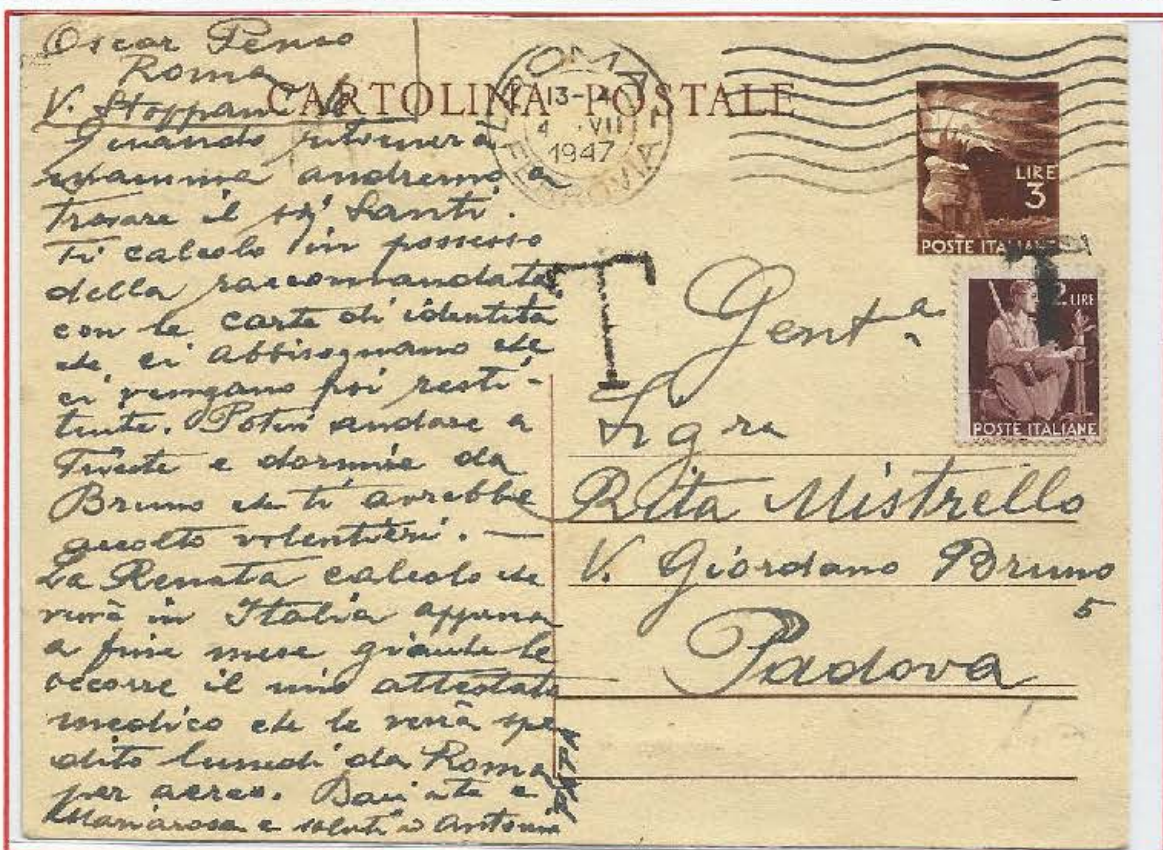 Oscar Penso
Roma
V. Stoppani
CARTOLINA POSTALE
ROMA
13-
4 VII
1947
FERROVIA
LIRE
3
POSTE ITALIANE
2 LIRE
POSTE ITALIANE
T
T
Quando ritornerà
mamma andremo a
trovare il Santi.
Ti calcolo in possesso
della raccomandata
con le carte di identità
che ci abbisognano che
ci vengano poi resti-
tuite. Potevi andare a
Trieste e dormire da
Bruno che ti avrebbe
accolto volentieri. —
La Renata calcolo che
verrà in Italia appena
a fine mese giacchè le
occorre il mio attestato
medico che le verrà spe
dito lunedì da Roma
per aereo. Baci a te e
Mariarosa e saluti a Antonio
Gent a
Sigra
Rita Mistrello
V. Giordano Bruno
5
Padova